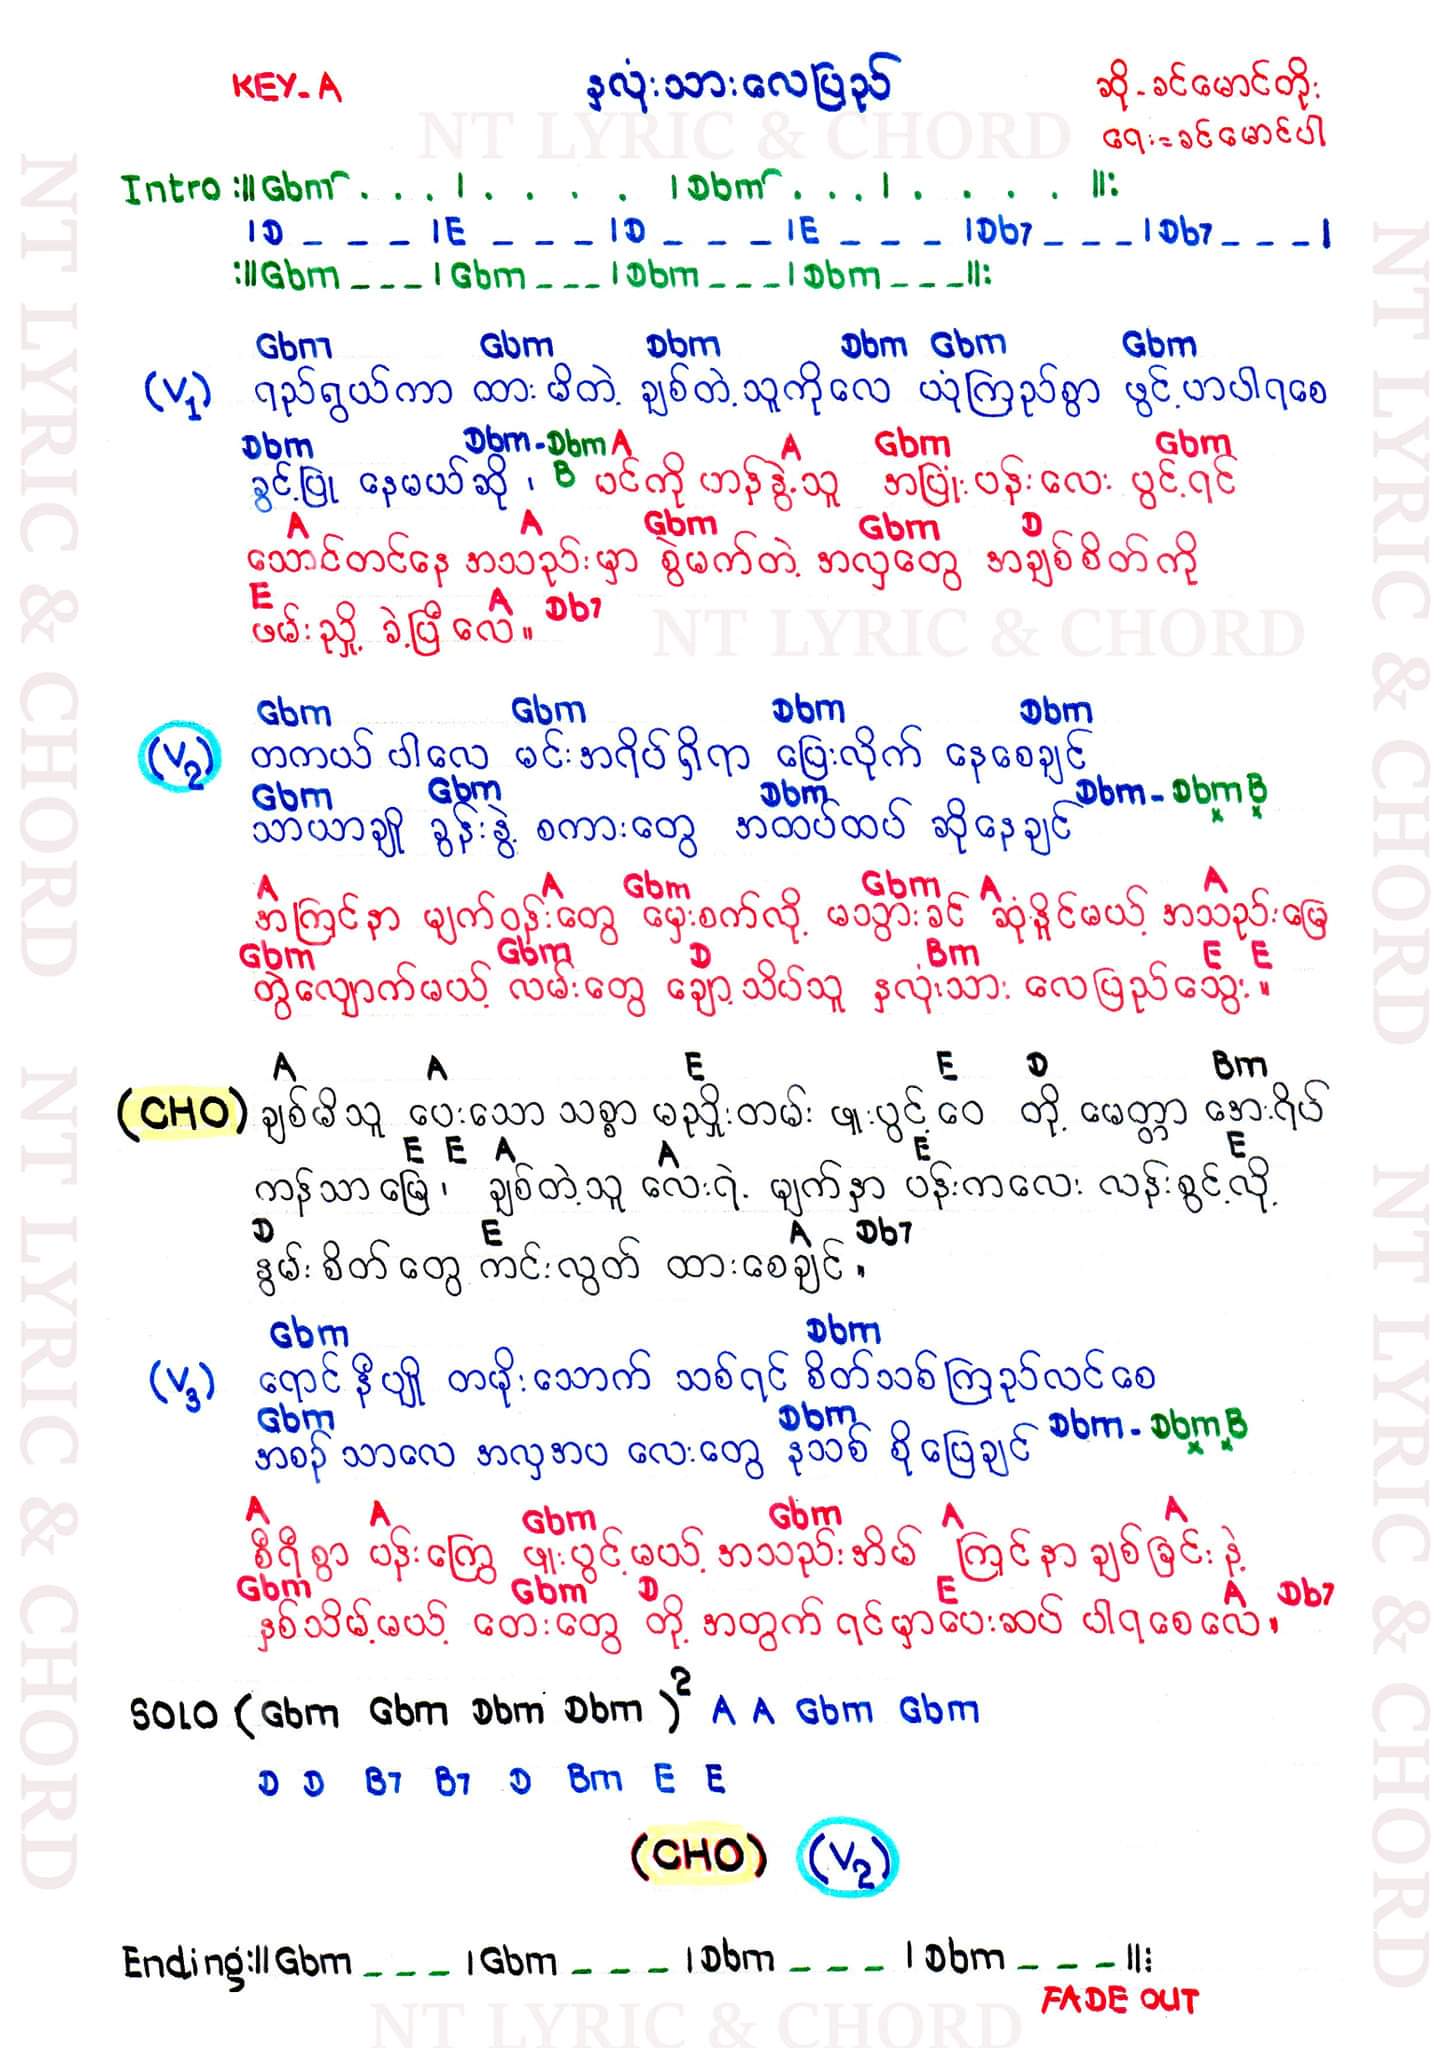 KEY-A နှလုံးသားလေပြည် ဆို-ခင်မောင်တိုး
ရေး=ခင်မောင်ပါ
NT LYRIC & CHORD
Intro :|| Gbm . . . | . . . . | Dbm . . . | . . . . ||:
| D _ _ _ | E _ _ _ | D _ _ _ | E _ _ _ | Db7 _ _ _ | Db7 _ _ _ |
:|| Gbm _ _ _ | Gbm _ _ _ | Dbm _ _ _ | Dbm _ _ _ ||:
Gbm Gbm Dbm Dbm Gbm Gbm
(V1) ရည်ရွယ်ကာ ထားမိတဲ့ ချစ်တဲ့သူကိုလေ ယုံကြည်စွာ ဖွင့်ဟာပါရစေ
Dbm Dbm-Dbm B A A Gbm Gbm
ခွင့်ပြု နေမယ်ဆို၊ မင်ကို ဟန်နွဲ့သူ အပြုံးပန်းလေး ပွင့်ရင်
A A Gbm Gbm D
သောင်တင်နေ အသည်းမှာ စွဲမက်တဲ့ အလှတွေ အချစ်စိတ်ကို
E A Db7
ဖမ်းညှို့ ခဲ့ပြီလေ။
NT LYRIC & CHORD
Gbm Gbm Dbm Dbm
(V2) တကယ်ပါလေ မင်းအရိပ်ရှိရာ ပြေးလိုက် နေစေချင်
Gbm Gbm Dbm Dbm-Dbm B
သာယာချို ခွန်းနွဲ့ စကားတွေ အထပ်ထပ် ဆိုနေချင်
A A Gbm Gbm A A
အကြင်နာ မျက်ဝန်းတွေ မှေးစက်လို့ မသွားခင် ဆုံနိုင်မယ့် အသည်းမြေ
Gbm Gbm D Bm E E
တွဲလျှောက်မယ့် လမ်းတွေ ချော့သိပ်သူ နှလုံးသား လေပြည်သွေး။
A A E E D Bm
(CHO) ချစ်မိသူ ပေးသော သစ္စာ မညှိုးတမ်း ဖူးပွင့်ဝေ တို့ မေတ္တာ အေးရိပ်
E E A A E E
ကန်သာမြေ၊ ချစ်တဲ့သူ လေးရဲ့ မျက်နှာ ပန်းကလေး လန်းစွင့်လို့
D E A Db7
နွမ်းစိတ်တွေ ကင်းလွတ် ထားစေချင်။
Gbm Dbm
(V3) ရောင်နီပျို တဖိုးသောက် သစ်ရင် စိတ်သစ်ကြည်လင်စေ
Gbm Dbm Dbm-Dbm B
အစဉ်သာလေ အလှအပ လေးတွေ နုသစ် စိုပြေချင်
A A Gbm Gbm A A
စီရီစွာ ပန်းကြွေ ဖူးပွင့်မယ့် အသည်းအိမ် ကြင်နာချစ်ခြင်းနဲ့
Gbm Gbm D E A Db7
နှစ်သိမ့်မယ့် တေးတွေ တို့ အတွက် ရင်မှာပေးဆပ် ပါရစေလေ။
SOLO (Gbm Gbm Dbm Dbm)2 A A Gbm Gbm
D D B7 B7 D Bm E E
(CHO) (V2)
Ending:|| Gbm _ _ _ | Gbm _ _ _ | Dbm _ _ _ | Dbm _ _ _ ||:
FADE OUT
NT LYRIC & CHORD
NT LYRIC & CHORD NT LYRIC & CHORD
NT LYRIC & CHORD NT LYRIC & CHORD